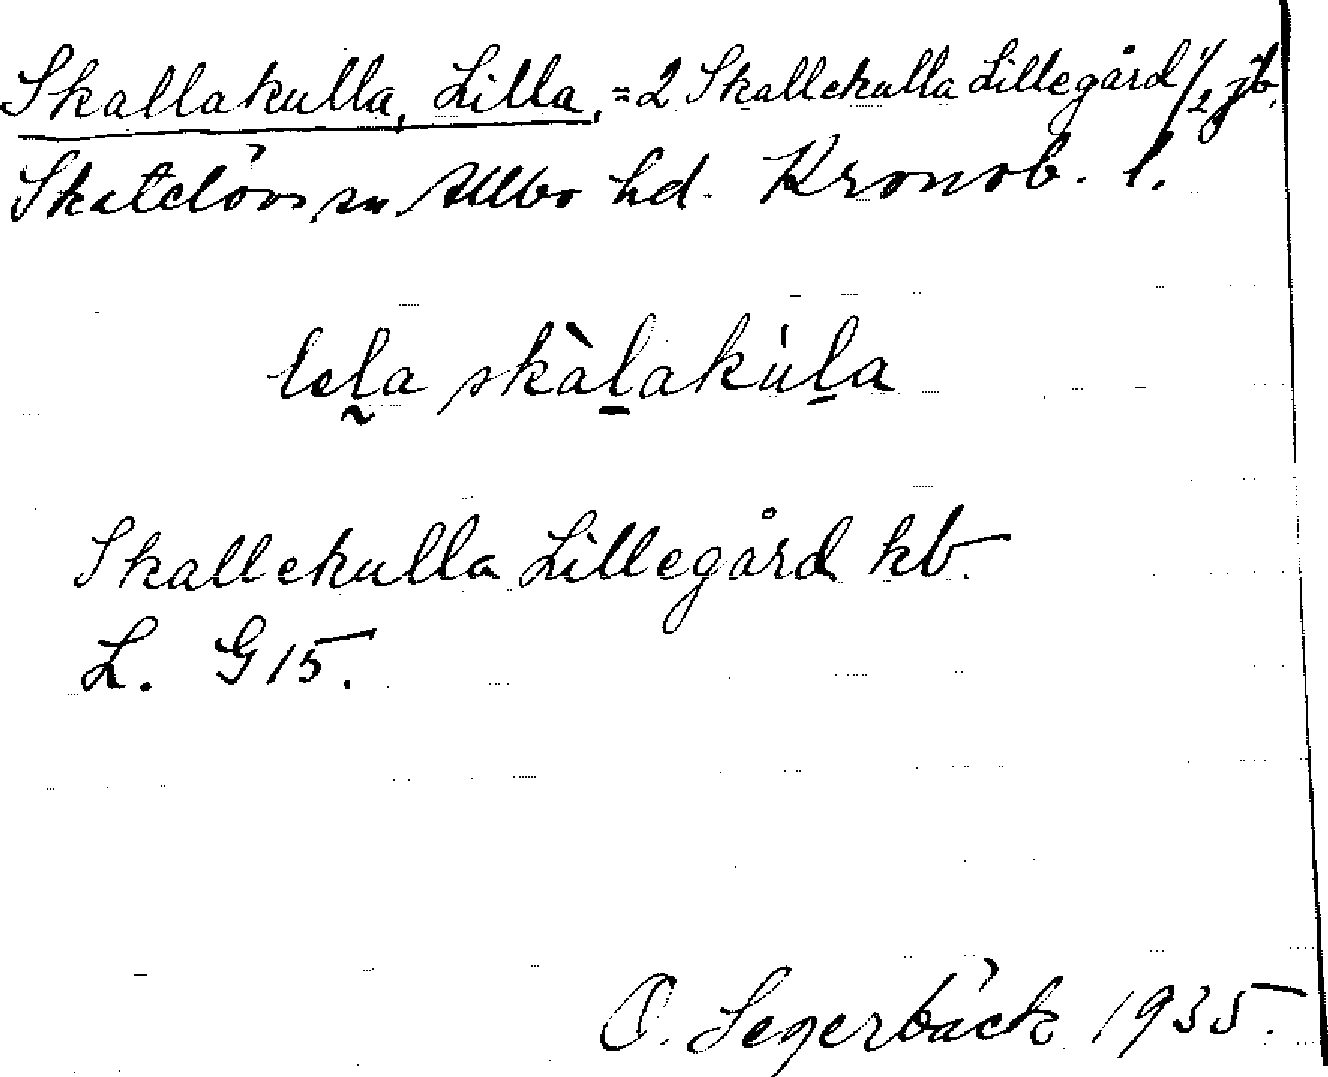 Skallakulla, Lilla, =2 Skallekulla Lillegård 1/2 jb.
Skatelövs sn. Allbo hd. Kronob. l.
lel̰a skàl̠akùl̠a
Skallekulla Lillegård kb.
L. G 15.
O. Segerbäck 1935.